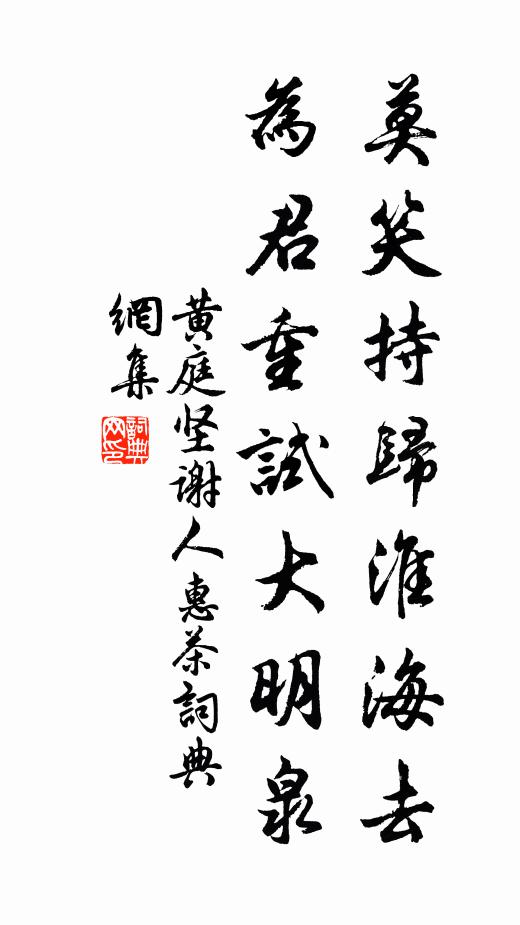 莫笑持歸淮海去
為君重試大明泉
黄庭坚谢人惠茶詞典
網集
詞典
网印